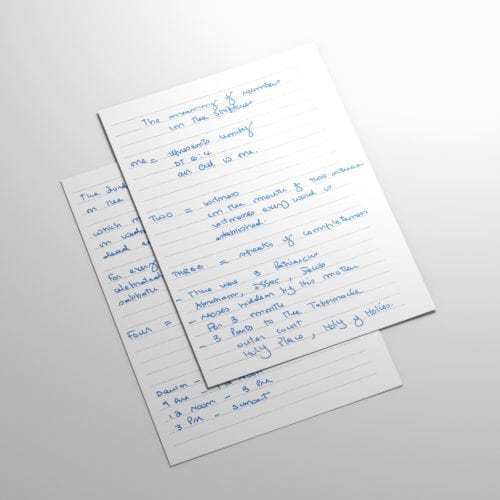 The meaning of numbers
in the Scripture
one = represents unity
DT 6:4
our God is one.
Two = witness
in the mouth of two
witnesses every word is
established.
THREE = speaks of completeness
- There were 3 Patriarchs
Abraham, Issac, Jacob
- Moses hidden by His mother
For 3 month
- 3 Parts to the Tabernacle
outer court
Holy Place, Holy of Holies.
The
in the
which
on
dead
For every
celebrated
sabbath
Four =
Dawn -
9 AM - Noon
12 Noon - 3 PM
3 PM - Sunset